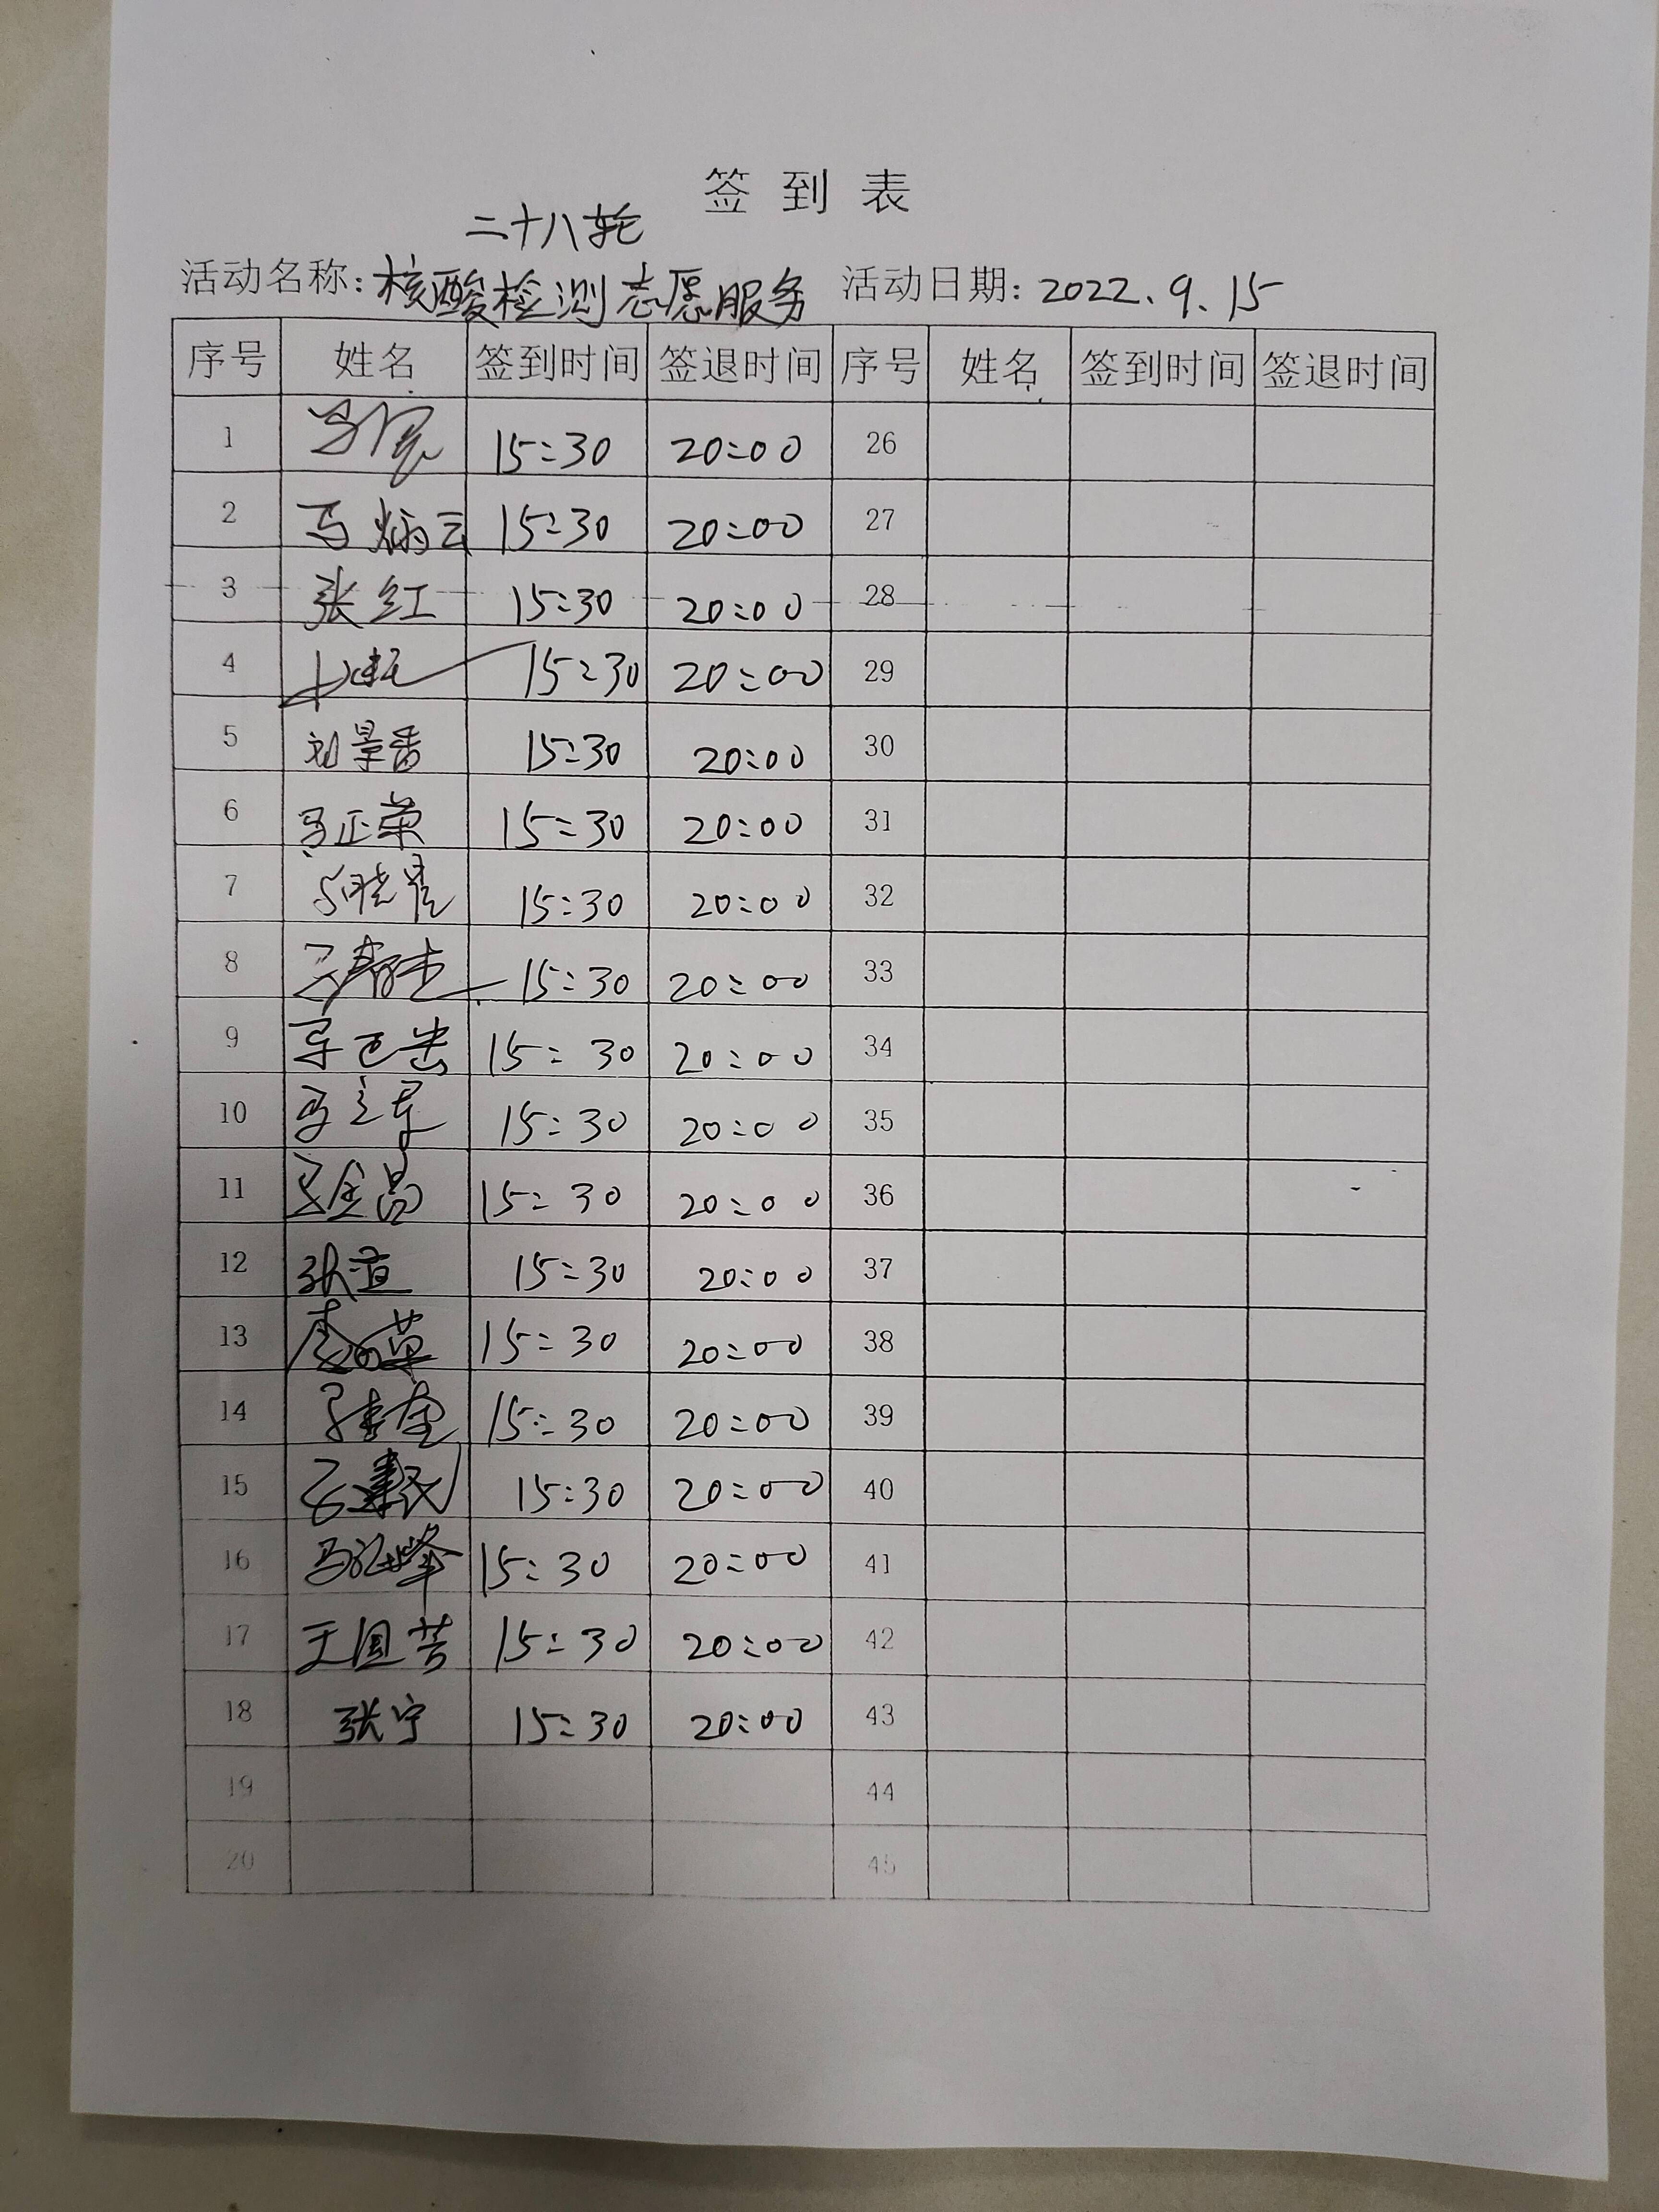 签到表
二十八轮
活动名称:核酸检测志愿服务 活动日期:2022.9.15
序号 姓名 签到时间 签退时间 序号 姓名 签到时间 签退时间
1 15:30 20:00 26
2 马炳云 15:30 20:00 27
3 张红 15:30 20:00 28
4 15:30 20:00 29
5 刘景香 15:30 20:00 30
6 马正荣 15:30 20:00 31
7 15:30 20:00 32
8 15:30 20:00 33
9 15:30 20:00 34
10 15:30 20:00 35
11 15:30 20:00 36
12 15:30 20:00 37
13 15:30 20:00 38
14 15:30 20:00 39
15 15:30 20:00 40
16 15:30 20:00 41
17 15:30 20:00 42
18 张宁 15:30 20:00 43
19 44
20 45